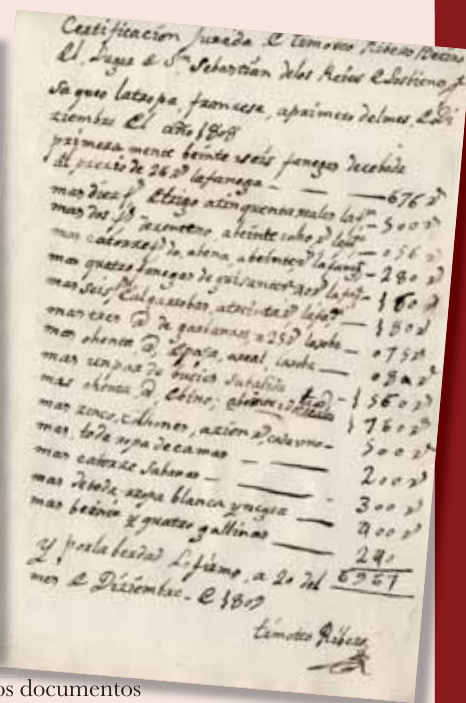 Certificacion Jurada de timoteo Ribero Becino
El Lugar de Sn Sebastian delos Reies
saqueo latropa, francesa, aprimero delmes, de Di
ziembre El año 1808
primera mente beinte seis fanegas decebada
Al prezio de 26 rs lafanega — — — 676 rs
mas diez fs trigo azinquenta reales la fa — 500 rs
mas dos fs dezenteno, abeinte ocho rs la fa — 056 rs
mas catorze fs de, abena, abeinte rs la fang — 280 rs
mas quatro fanegas de guisantes la fa — 160 rs
mas seis fs algarrobas, atreinta rs la fa — 180 rs
mas tres @ de garbanzos, a 25 rs — 075 rs
mas ochenta @ , areal, — 080 rs
mas un par de — 1560 rs
mas ochenta @ — 1760 rs
mas zinco, , azien rs, cada uno — 500 rs
mas, toda ropa decamas — 200 rs
mas catorze sabanas — 300 rs
mas detoda, ropa blanca ynegra — 400 rs
mas beinte y quatro gallinas — 240
6967
Y porla berdad Lo firmo, a 20 del
mes de Diziembre
timoteo Ribero
os documentos